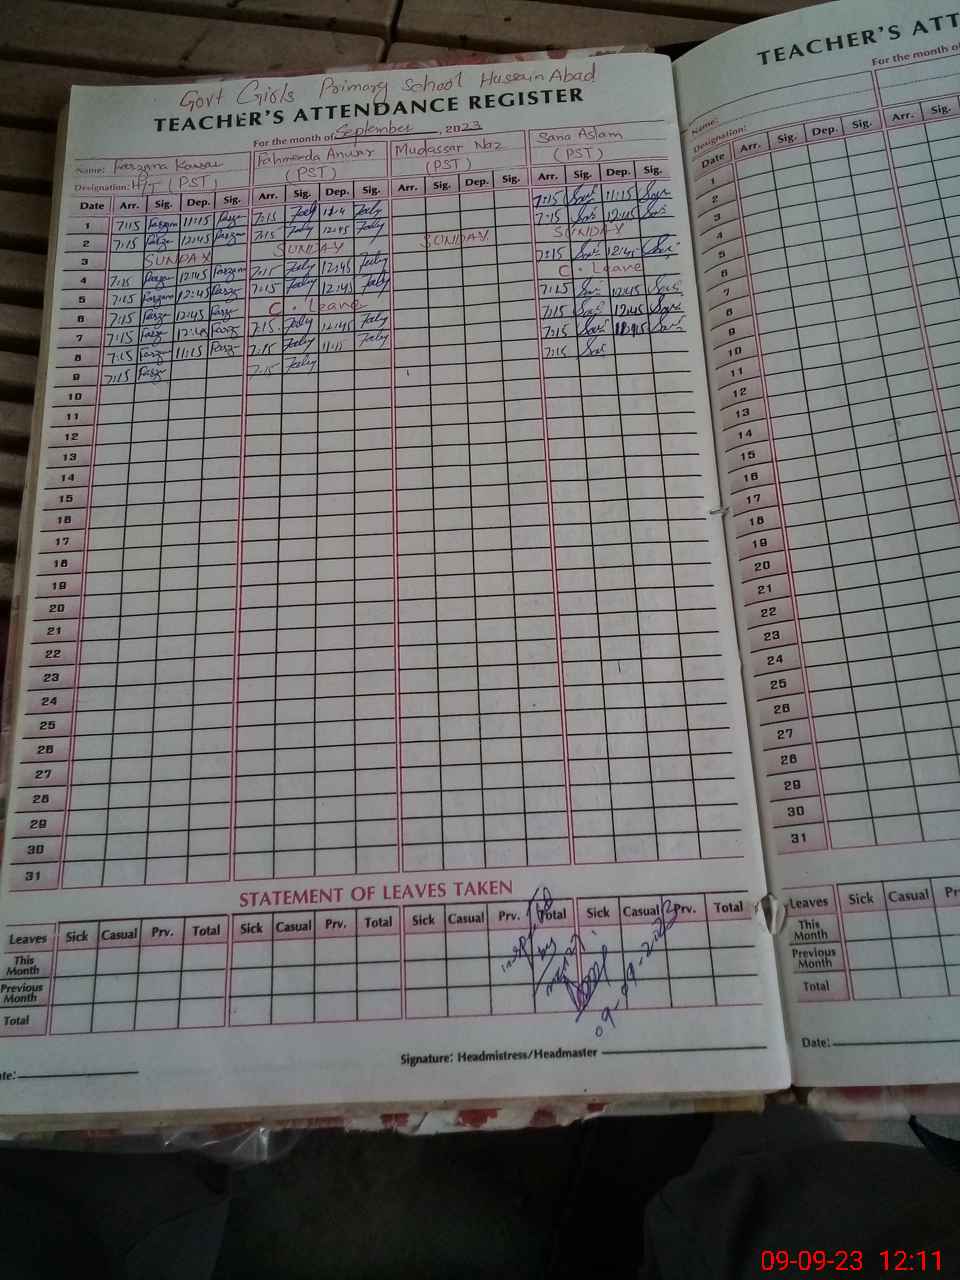 Govt Girls Primary School Hussain Abad
TEACHER'S ATTENDANCE REGISTER
For the month of September, 2023
Name: Farzana Kausar Fahmeeda Anwar Mudassar Naz Sana Aslam
Designation: H/T (PST) (PST) (PST) (PST)
Date Arr. Sig. Dep. Sig. Arr. Sig. Dep. Sig. Arr. Sig. Dep. Sig. Arr. Sig. Dep. Sig.
1 7:15 11:15 7:15 7:15 11:15
2 7:15 12:45 7:15 12:45 7:15 12:45
3 SUNDAY SUNDAY SUNDAY SUNDAY
4 7:15 12:45 7:15 12:45 7:15 12:45
5 7:15 12:45 7:15 12:45 C. Leave
6 7:15 12:45 C. Leave 7:15 12:45
7 7:15 12:45 7:15 12:45 7:15 12:45
8 7:15 11:15 7:15 11:15 7:15
9 7:15 7:15 7:15
10
11
12
13
14
15
16
17
18
19
20
21
22
23
24
25
26
27
28
29
30
31
STATEMENT OF LEAVES TAKEN
Leaves Sick Casual Prv. Total Sick Casual Prv. Total Sick Casual Prv. Total Sick Casual Prv. Total
This Month
Previous Month
Total
09-09-2023
Signature: Headmistress/Headmaster
te:
TEACHER'S ATT
For the month of
Name:
Designation:
Date Arr. Sig. Dep. Sig. Arr. Sig.
1
2
3
4
5
6
7
8
9
10
11
12
13
14
15
16
17
18
19
20
21
22
23
24
25
26
27
28
29
30
31
Leaves Sick Casual Prv
This Month
Previous Month
Total
Date:
09-09-23 12:11